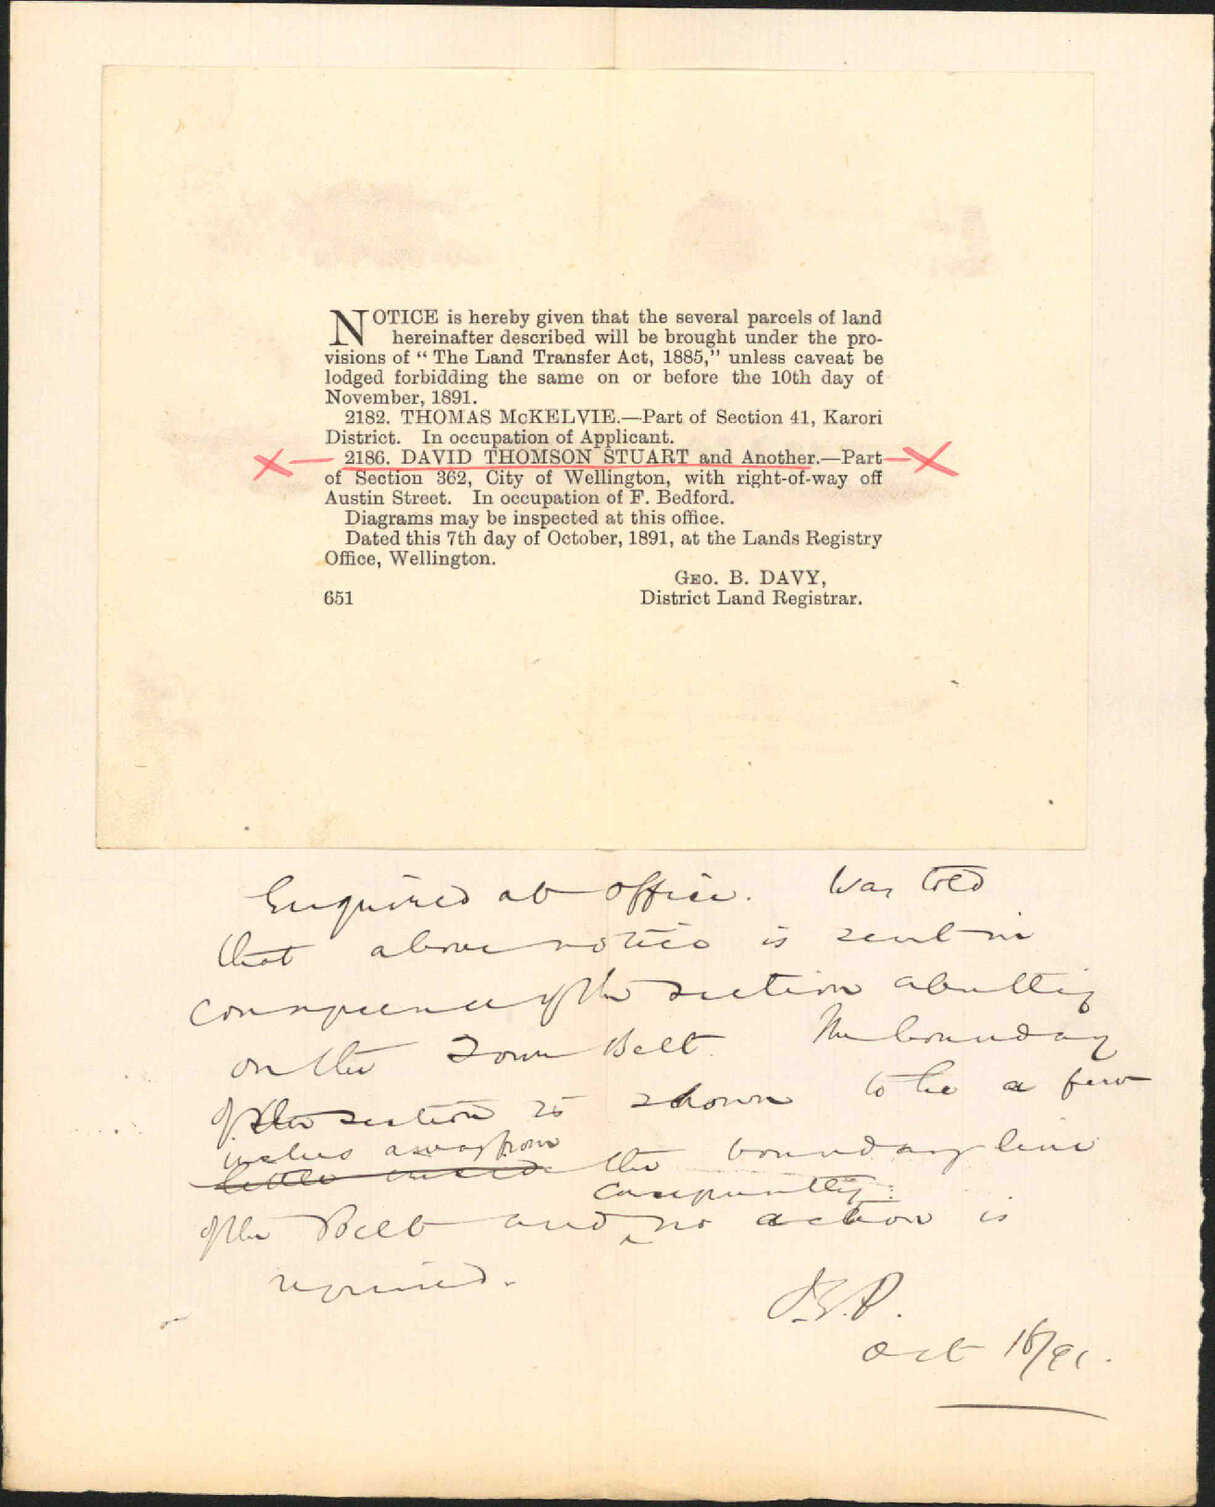 NOTICE is hereby given that the several parcels of land
hereinafter described will be brought under the pro-
visions of “ The Land Transfer Act, 1885,” unless caveat be
lodged forbidding the same on or before the 10th day of
November, 1891.
2182. THOMAS McKELVIE.—Part of Section 41, Karori
District. In occupation of Applicant.
2186. DAVID THOMSON STUART and Another.—Part
of Section 362, City of Wellington, with right-of-way off
Austin Street. In occupation of F. Bedford.
Diagrams may be inspected at this office.
Dated this 7th day of October, 1891, at the Lands Registry
Office, Wellington.
GEO. B. DAVY,
651 District Land Registrar.
Enquired at office. Was told
that above notice is sent in
consequence of the section abutting
on the Town Belt. The boundary
of the section is shown to be a few
inches away from
little inside the boundary line
consequently
of the Belt and no action is
required.
Oct 16/91.